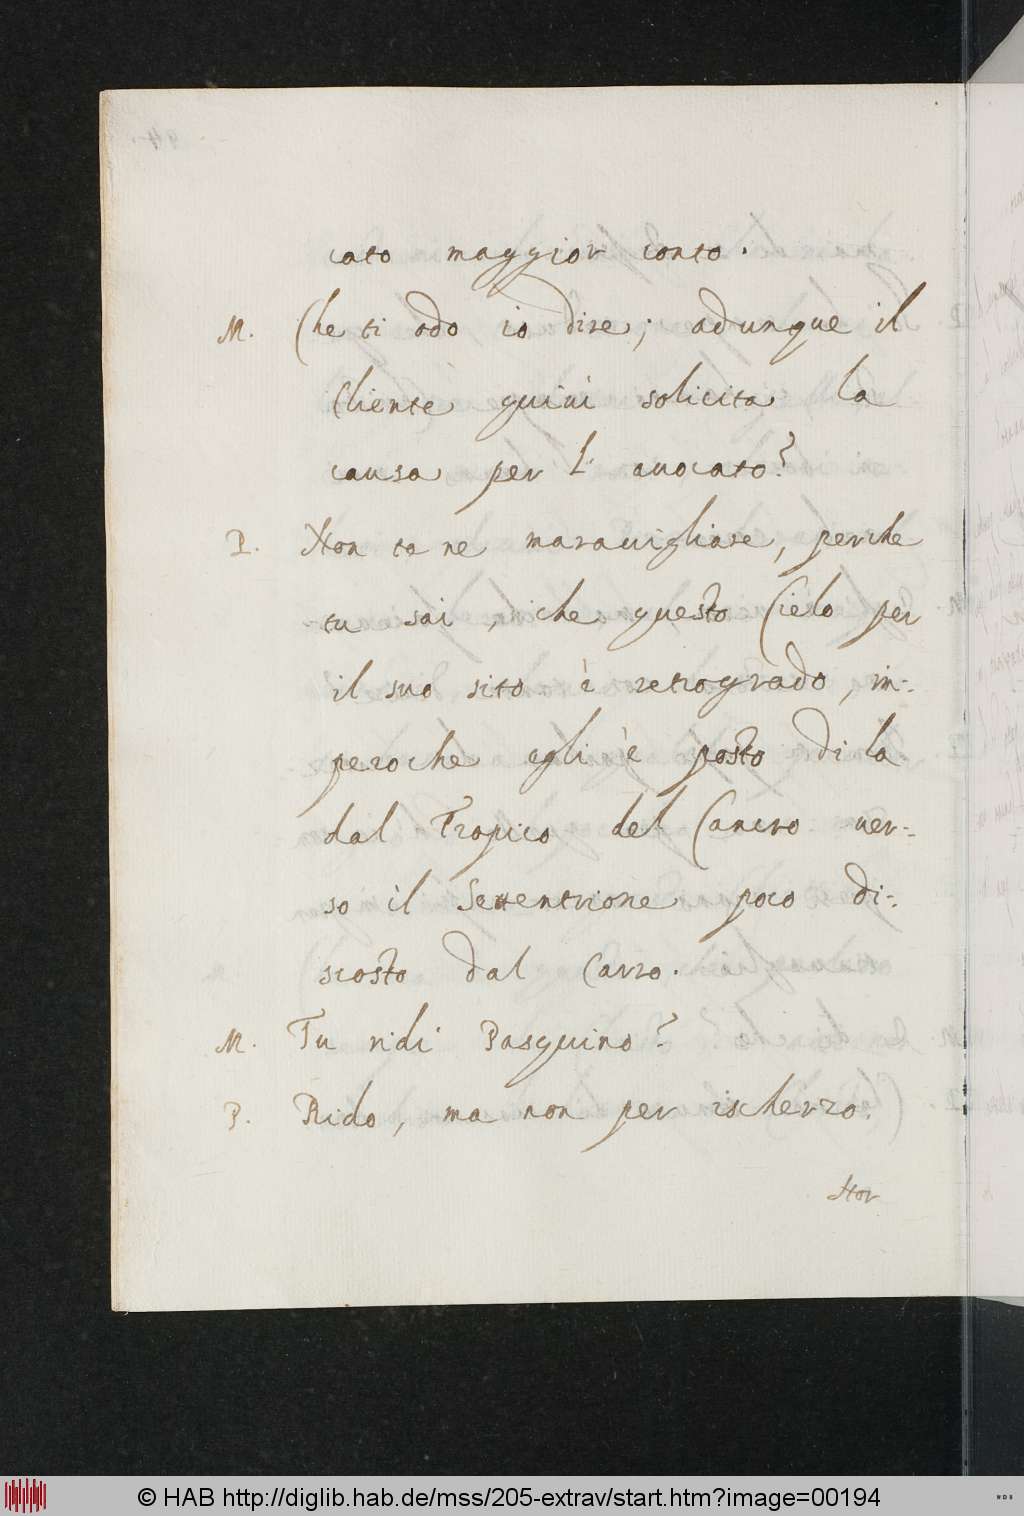 cato maggior conto.
M. Che ti odo io dire; adunque il
Cliente quiui solicita la
causa per l' auocato?
P. Non te ne marauigliare, perche
tu sai, che questo Cielo per
il suo sito è retrogrado, im-
peroche egli è posto di la
dal Tropico del Cancro uer-
so il Settentrione poco di-
scosto dal Carro.
M. Tu ridi Pasquino?
P. Rido, ma non per ischerzo.
Hor
© HAB http://diglib.hab.de/mss/205-extrav/start.htm?image=00194